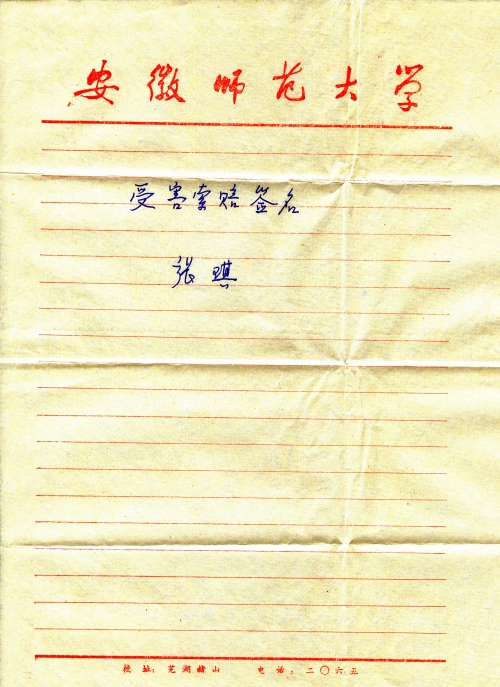 安徽师范大学
受害索赔签名
张琪
校址：芜湖赭山 电话：二〇六五